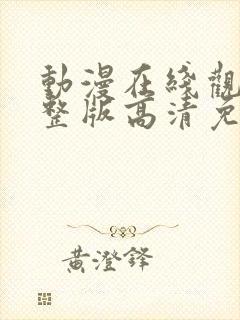 動漫在綫觀
整版高清免
黃澄鋒